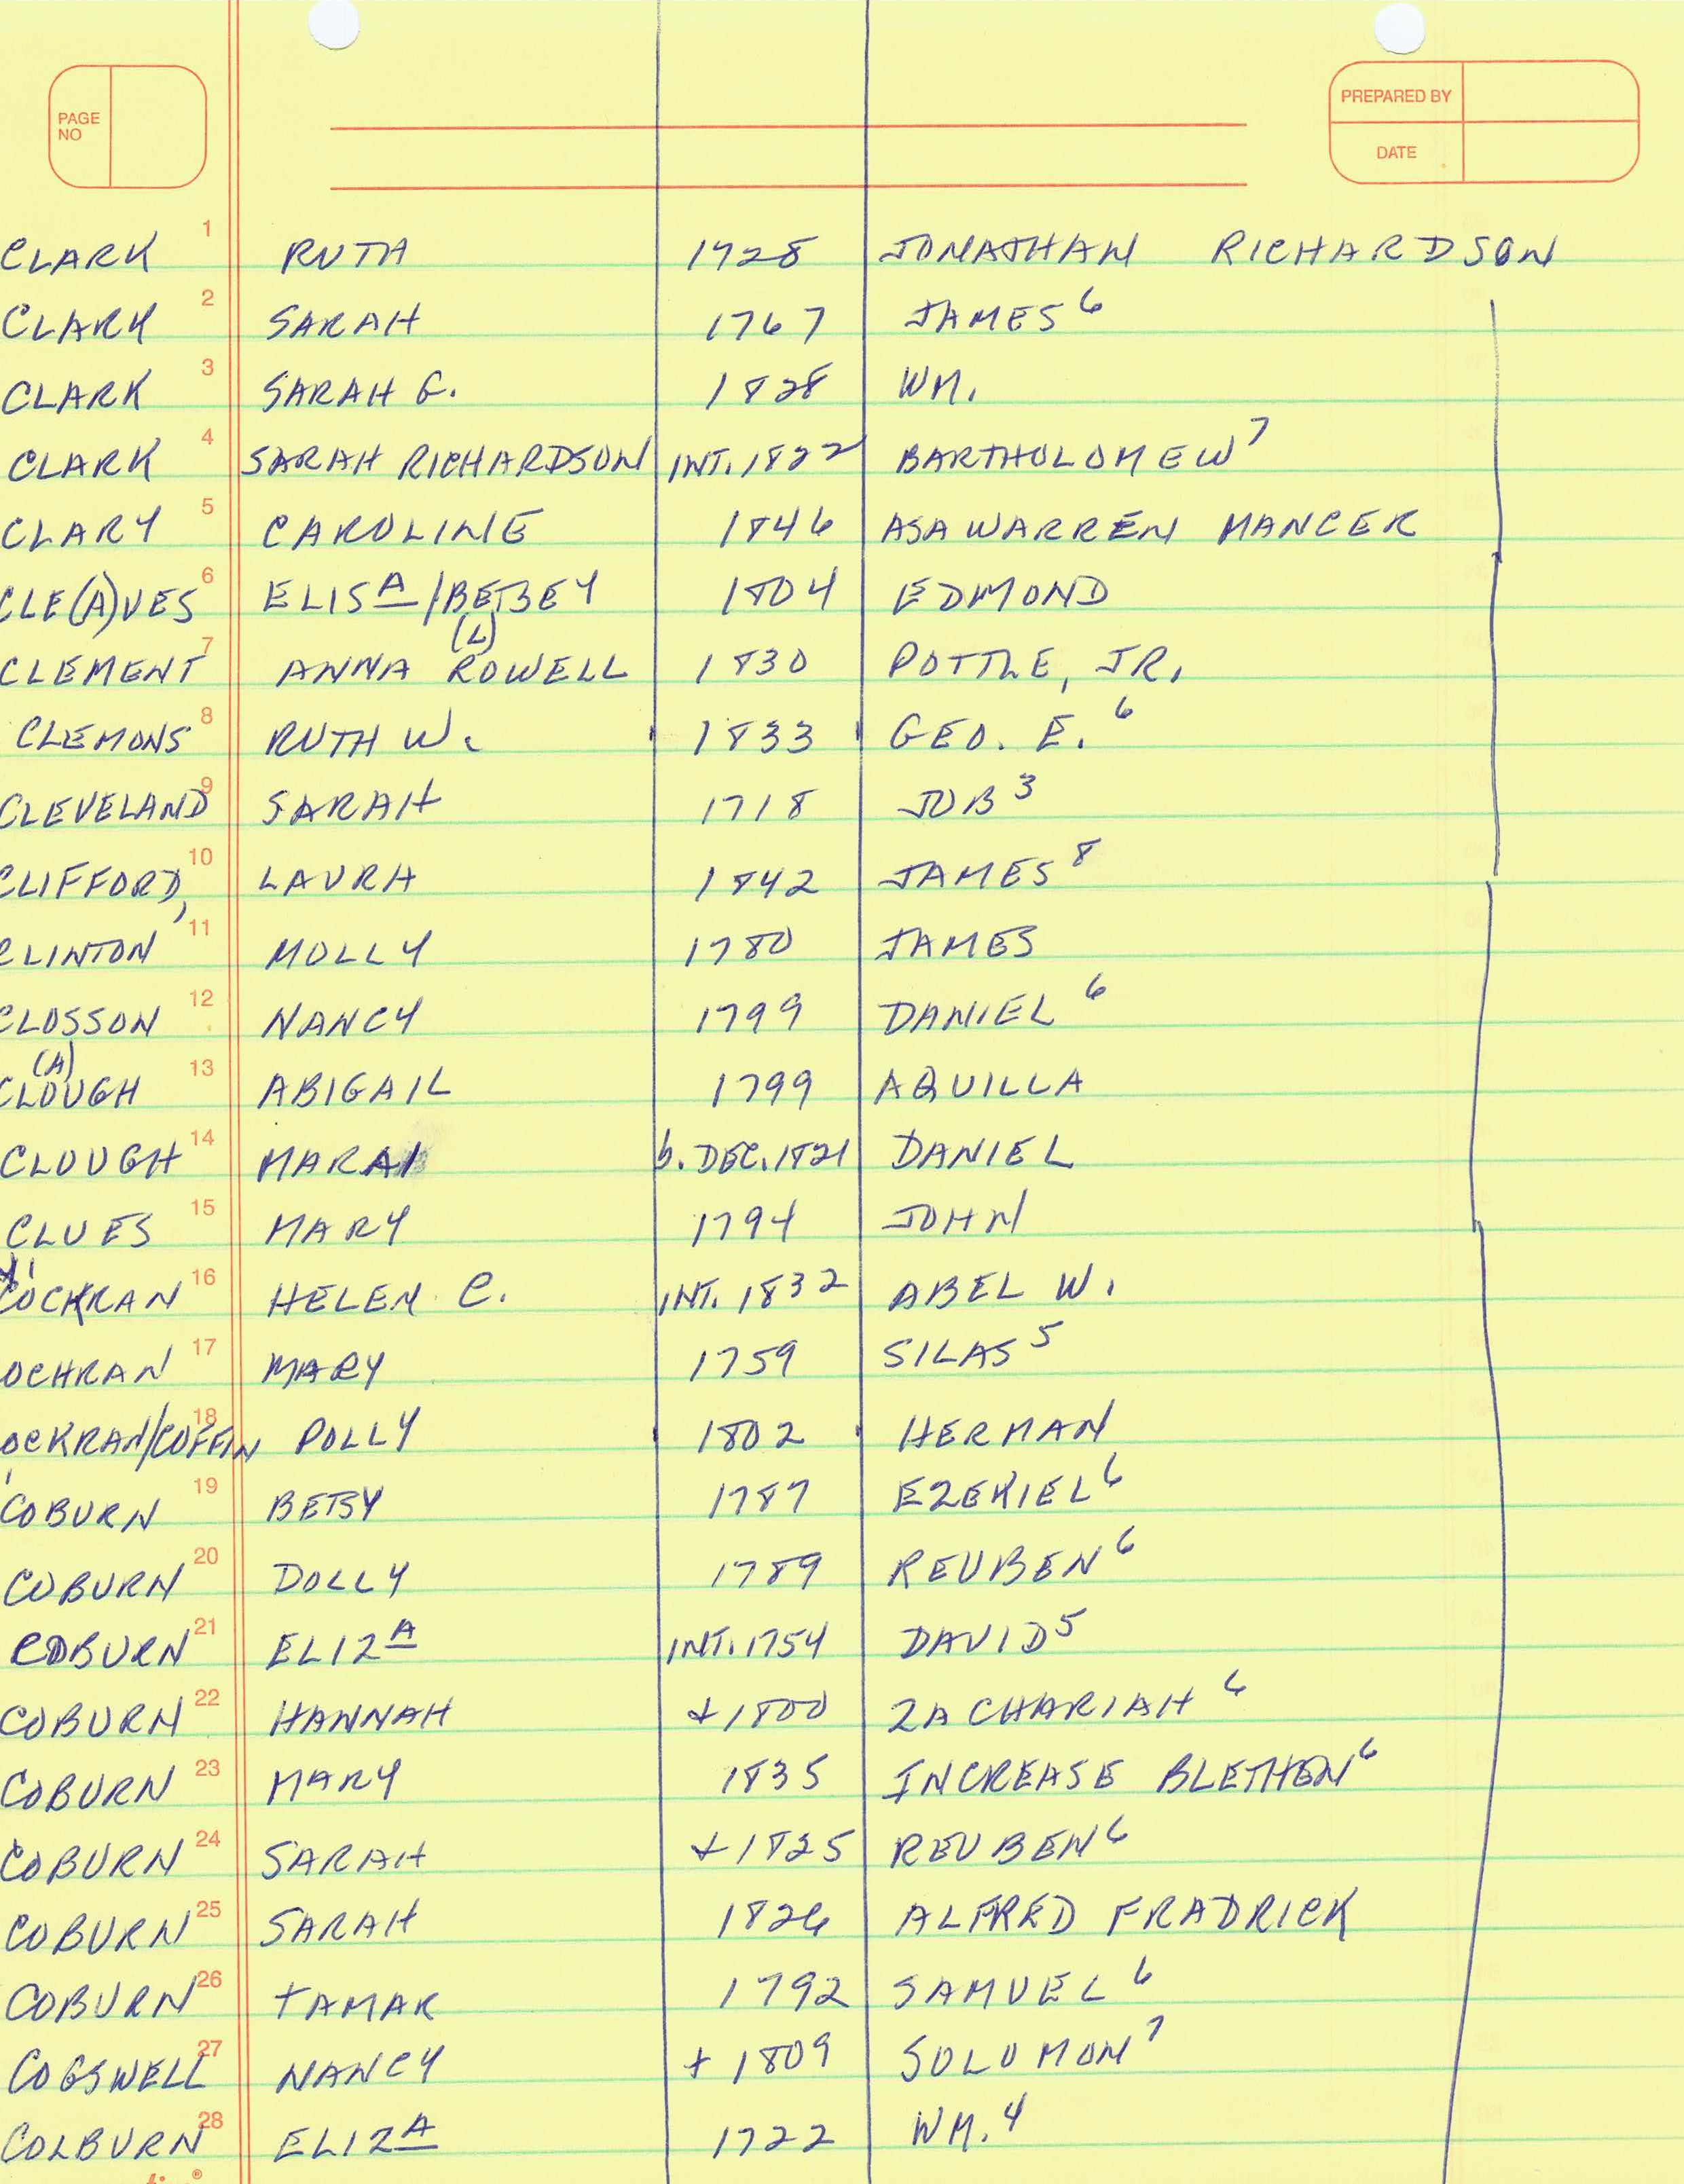 PAGE NO
PREPARED BY
DATE
CLARK 1 RUTH 1728 JONATHAN RICHARDSON
CLARK 2 SARAH 1767 JAMES⁶
CLARK 3 SARAH G. 1828 WM.
CLARK 4 SARAH RICHARDSON INT. 1822 BARTHOLOMEW⁷
CLARY 5 CAROLINE 1846 ASA WARREN MANCER
CLE(A)VES 6 ELISA/BETSEY 1804 EDMOND
CLEMENT 7 ANNA (L) ROWELL 1830 POTTLE, JR.
CLEMONS 8 RUTH W. 1833 GEO. E.⁶
CLEVELAND 9 SARAH 1718 JOB³
CLIFFORD, 10 LAURA 1842 JAMES⁸
CLINTON 11 MOLLY 1780 JAMES
CLOSSON 12 NANCY 1799 DANIEL⁶
(A)
CLOUGH 13 ABIGAIL 1799 AQUILLA
CLOUGH 14 b. DEC. 1821 DANIEL
CLUES 15 MARY 1794 JOHN
COCKRAN 16 HELEN C. INT. 1832 ABEL W.
OCHRAN 17 MARY 1759 SILAS⁵
OCKRAN/COFFIN 18 POLLY 1802 HERMAN
COBURN 19 BETSY 1787 EZEKIEL⁶
COBURN 20 DOLLY 1789 REUBEN⁶
COBURN 21 ELIZA INT. 1754 DAVID⁵
COBURN 22 HANNAH + 1800 ZACHARIAH⁶
COBURN 23 MARY 1835 INCREASE BLETHEN⁶
COBURN 24 SARAH + 1825 REUBEN⁶
COBURN 25 SARAH 1826 ALFRED FRADRICK
COBURN 26 TAMAR 1792 SAMUEL⁶
COGSWELL 27 NANCY + 1809 SOLOMON⁷
COLBURN 28 ELIZA 1722 WM.⁴